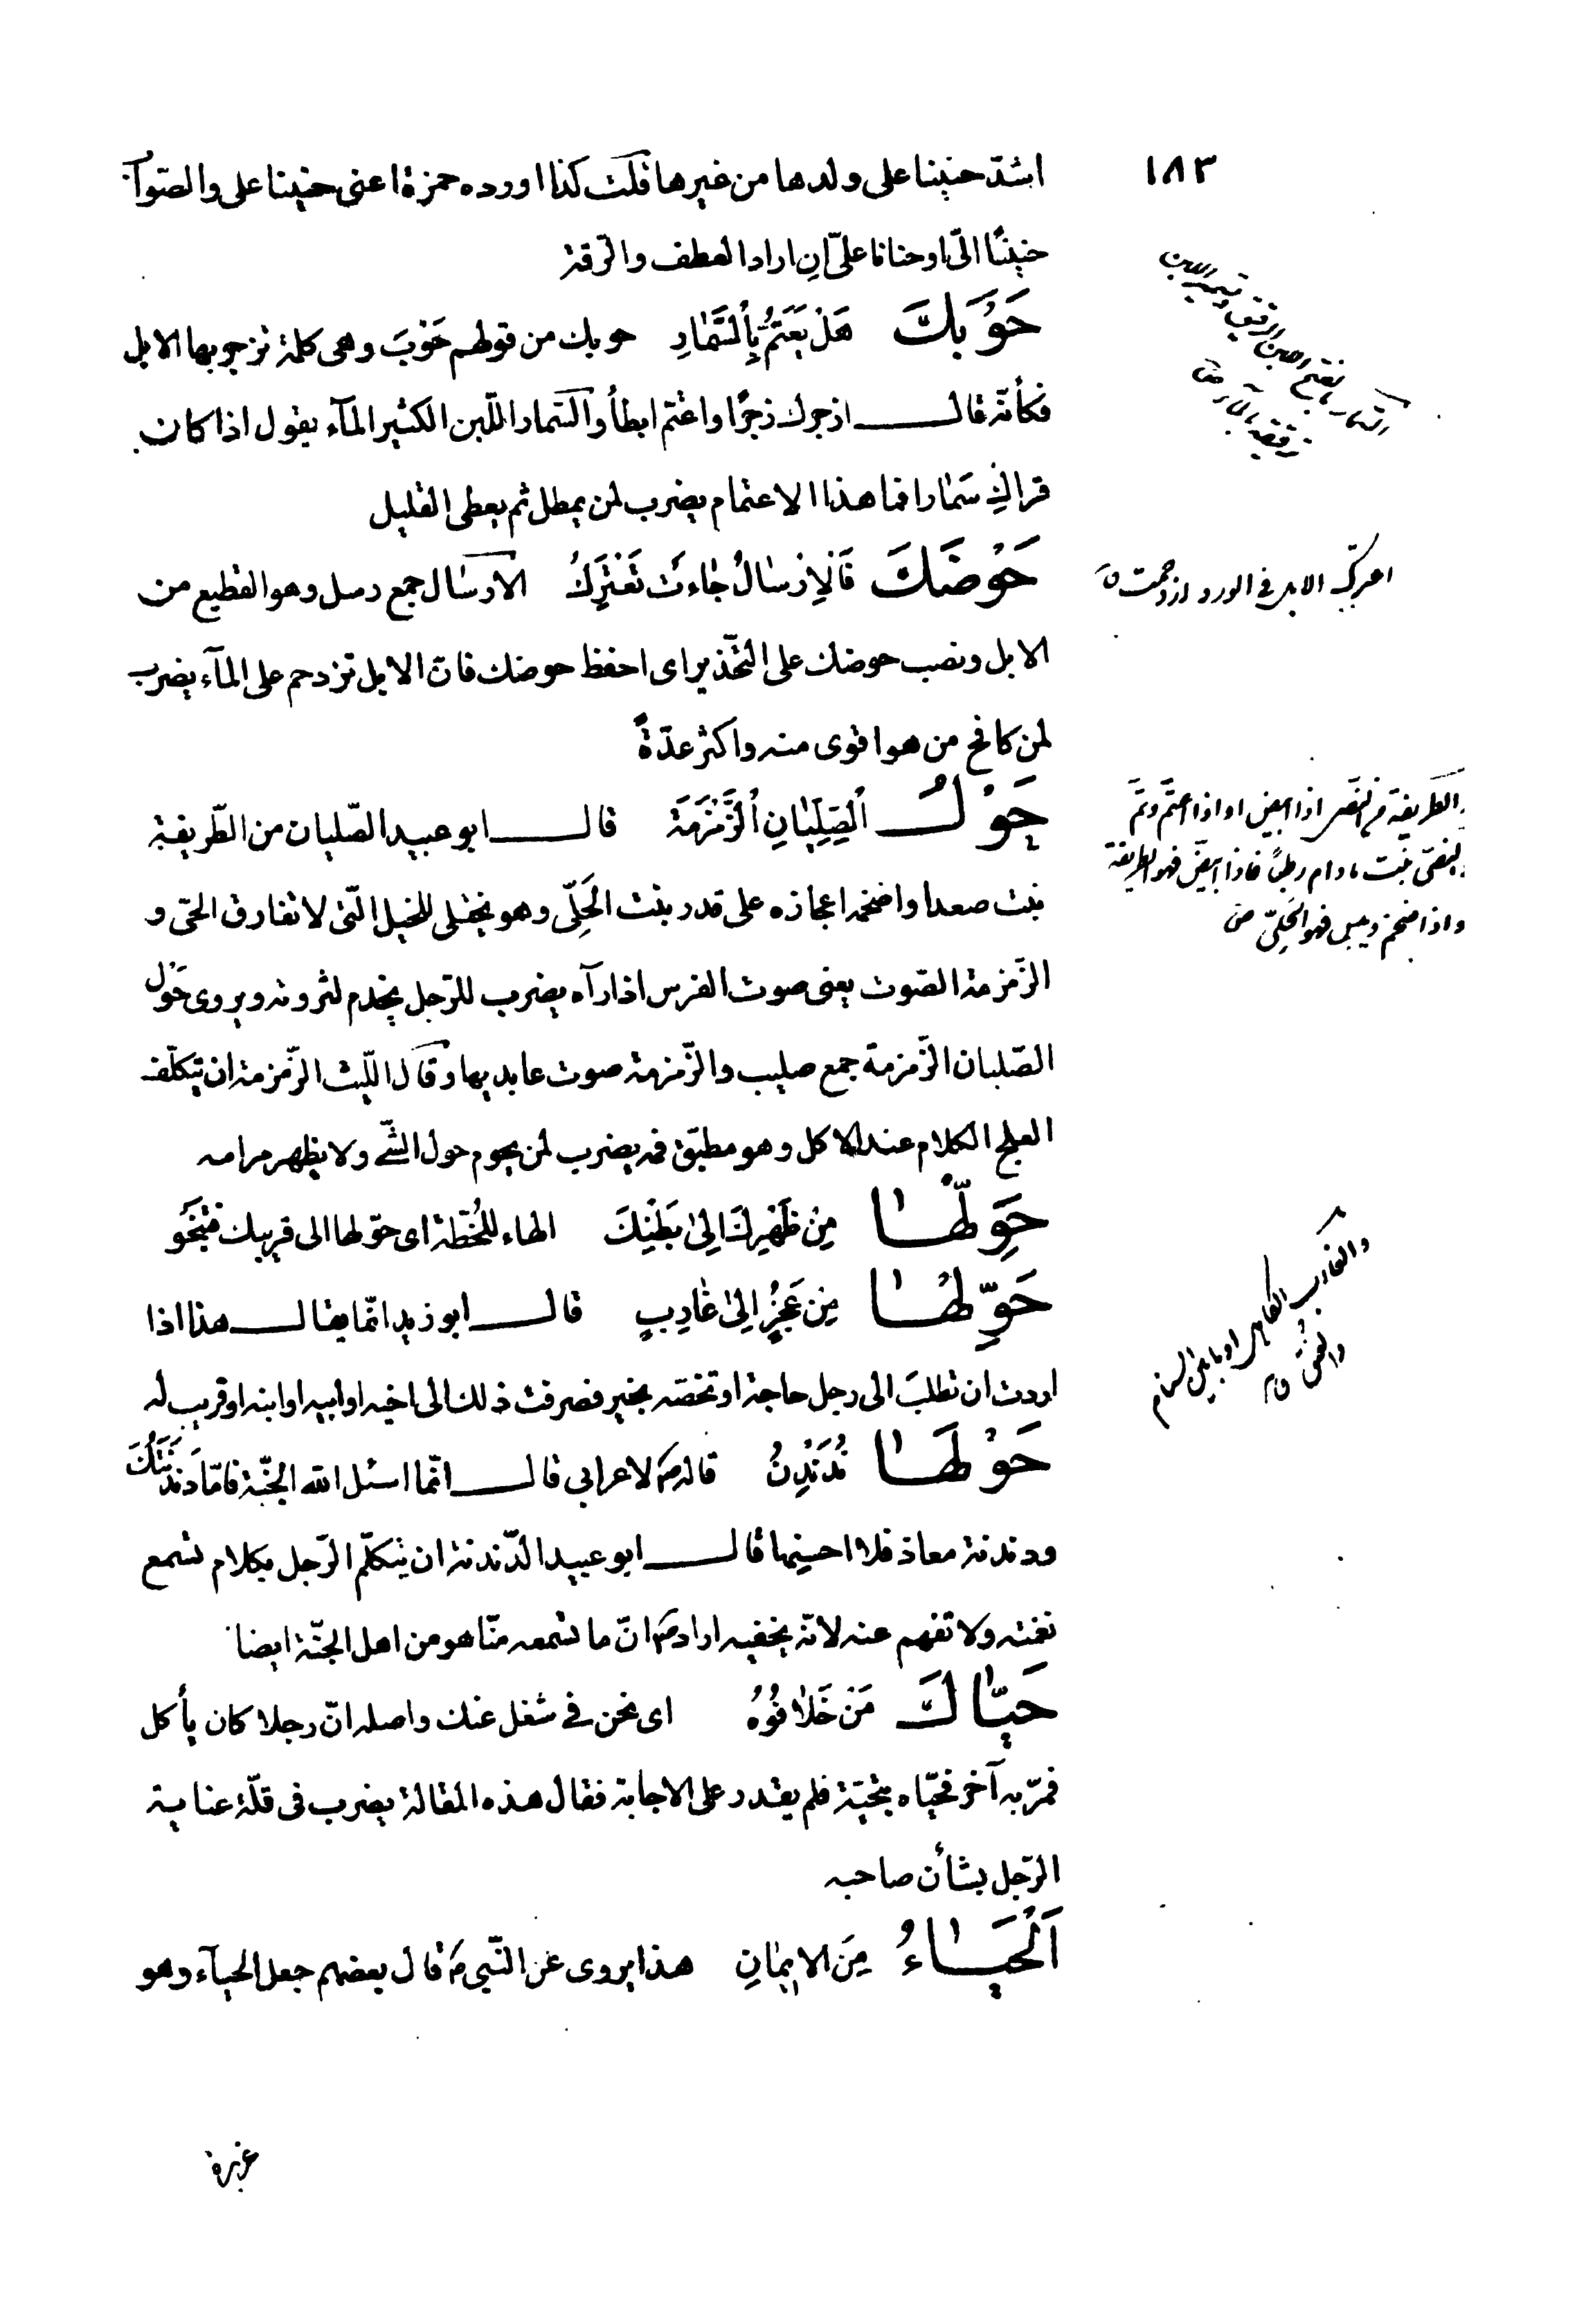 ١٨٣
اشدّ حنينا على ولدها من غيرها قلت كذا اورده حمزة اعنى حنينا على والصّواب
حنينًا الىّ او حنانا علىّ ان اراد العطف والرّقة
حَوْبَكَ هَلْ يُعْتَمُ بِالسَّمَارِ حوبك من قولهم حَوْبَ وهى كلمة تزجر بها الابل
فكأنّه قال ازجرك زجرًا واعتم ابطأ والسّمار اللّبن الكثير المآء يقول اذا كان
قراك سَمارا فما هذا الاعتمام يضرب لمن يمطل ثم يعطى القليل
حَوْضَكَ فَالْاَرْسَالُ جَاءَتْ تَعْتَرِكُ الارسال جمع رسل وهو القطيع من
الابل ونصب حوضك على التّحذير اى احفظ حوضك فانّ الابل تزدحم على المآء يضرب
لمن كافح من هو اقوى منه واكثر عدّةً
حَوْلَ الصِّلِّيَانِ الزَّمْزَمَةُ قال ابو عبيد الصّليان من الطّريفة
ينبت صعدا واضخمه اعجازه على قدر نبت الحَلِىّ وهو يختلى للخيل الّتى لا تفارق الحىّ و
الزّمزمة الصّوت يعنى صوت الفرس اذا رآه يضرب للرّجل يخدم لثروته ويروى حَوْل
الصّلبان الزّمزمة جمع صليب والزّمزمة صوت عابديها وقال اللّيث الزّمزمة ان يتكلّف
العلج الكلام عند الاكل وهو مطبق فمه يضرب لمن يحوم حول الشّئ ولا يظهر مرامه
حَوِّلْهَا مِنْ ظَهْرِكَ اِلىٰ بَطْنِكَ الهاء للخُطّة اى حوّلها الى قريبك فتنجو
حَوِّلْهَا مِنْ عَجُزٍ اِلىٰ غَارِبٍ قال ابو زيد انّما يقال هذا اذا
اردت ان تطلبَ الى رجل حاجة او تخصّه بخير فصرفت ذلك الى اخيه او ابيه او ابنه او قريب له
حَوْلَهَا نُدَنْدِنُ قاله ص لاعرابي قال انّما اسئل الله الجنّة فامّا دَنْدَنَتُكَ
ودندنة معاذ فلا احسنها قال ابو عبيد الدّندنة ان يتكلّم الرّجل بكلام تسمع
نغمته ولا تفهم عنه لانّه يخفيه اراد ص انّ ما تسمعه منّا هو من اهل الجنّة ايضا
حَيَّاكَ مَنْ خَلَا فُوهُ اى نحن فى شغل عنك واصله انّ رجلا كان يأكل
فمرّ به آخر فحيّاه بتحيّة فلم يقدر على الاجابة فقال هذه المقالة يضرب فى قلّة عناية
الرّجل بشأن صاحبه
اَلْحَيَاءُ مِنَ الْاِيمَانِ هذا يروى عن النّبى ص قال بعضهم جعل الحيآء وهو
اعتركت الابل فى الورد ازدحمت ق
الطريفة من النصى اذا ابيض او اذا اعتم وتم
النصى نبت مادام رطبًا فاذا ابيضّ فهو الطريفة
واذا ضخم ويبس فهو الحلىّ ص
والغارب الكاهل او ما بين السنام
والعنق ق
غريزة